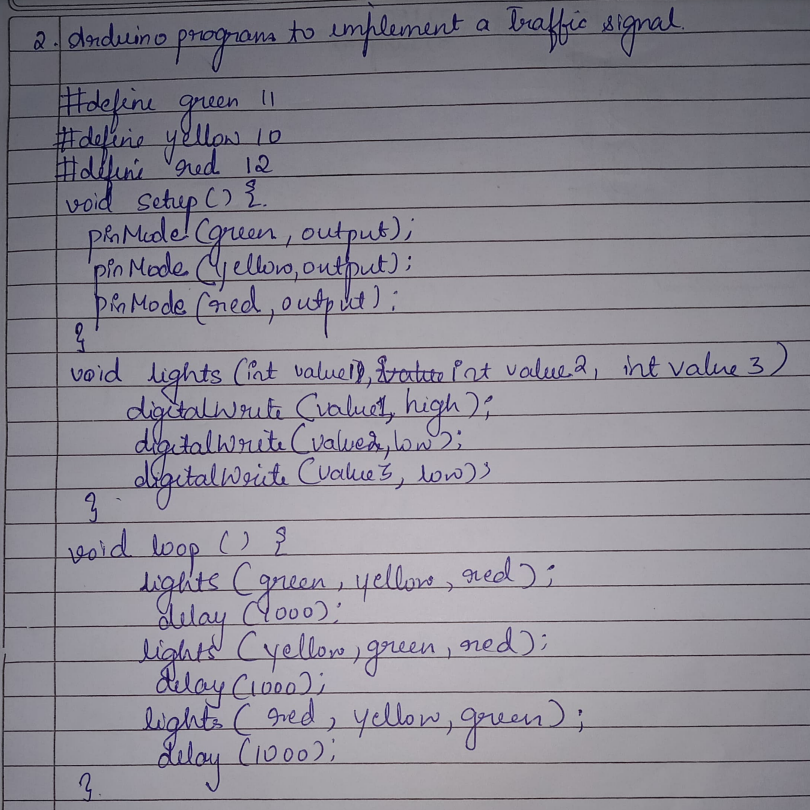 2. Arduino program to implement a Traffic signal.
#define green 11
#define yellow 10
#define red 12
void setup() {.
pinMode (green, output);
pinMode (yellow, output);
pinMode (red, output);
}
void lights (int value1, int value2, int value 3)
digitalWrite (value1, high);
digitalWrite (value2, low);
digitalWrite (value3, low);
}
void loop () {
lights (green, yellow, red);
delay (1000);
lights (yellow, green, red);
delay (1000);
lights ( red, yellow, green);
delay (1000);
}.